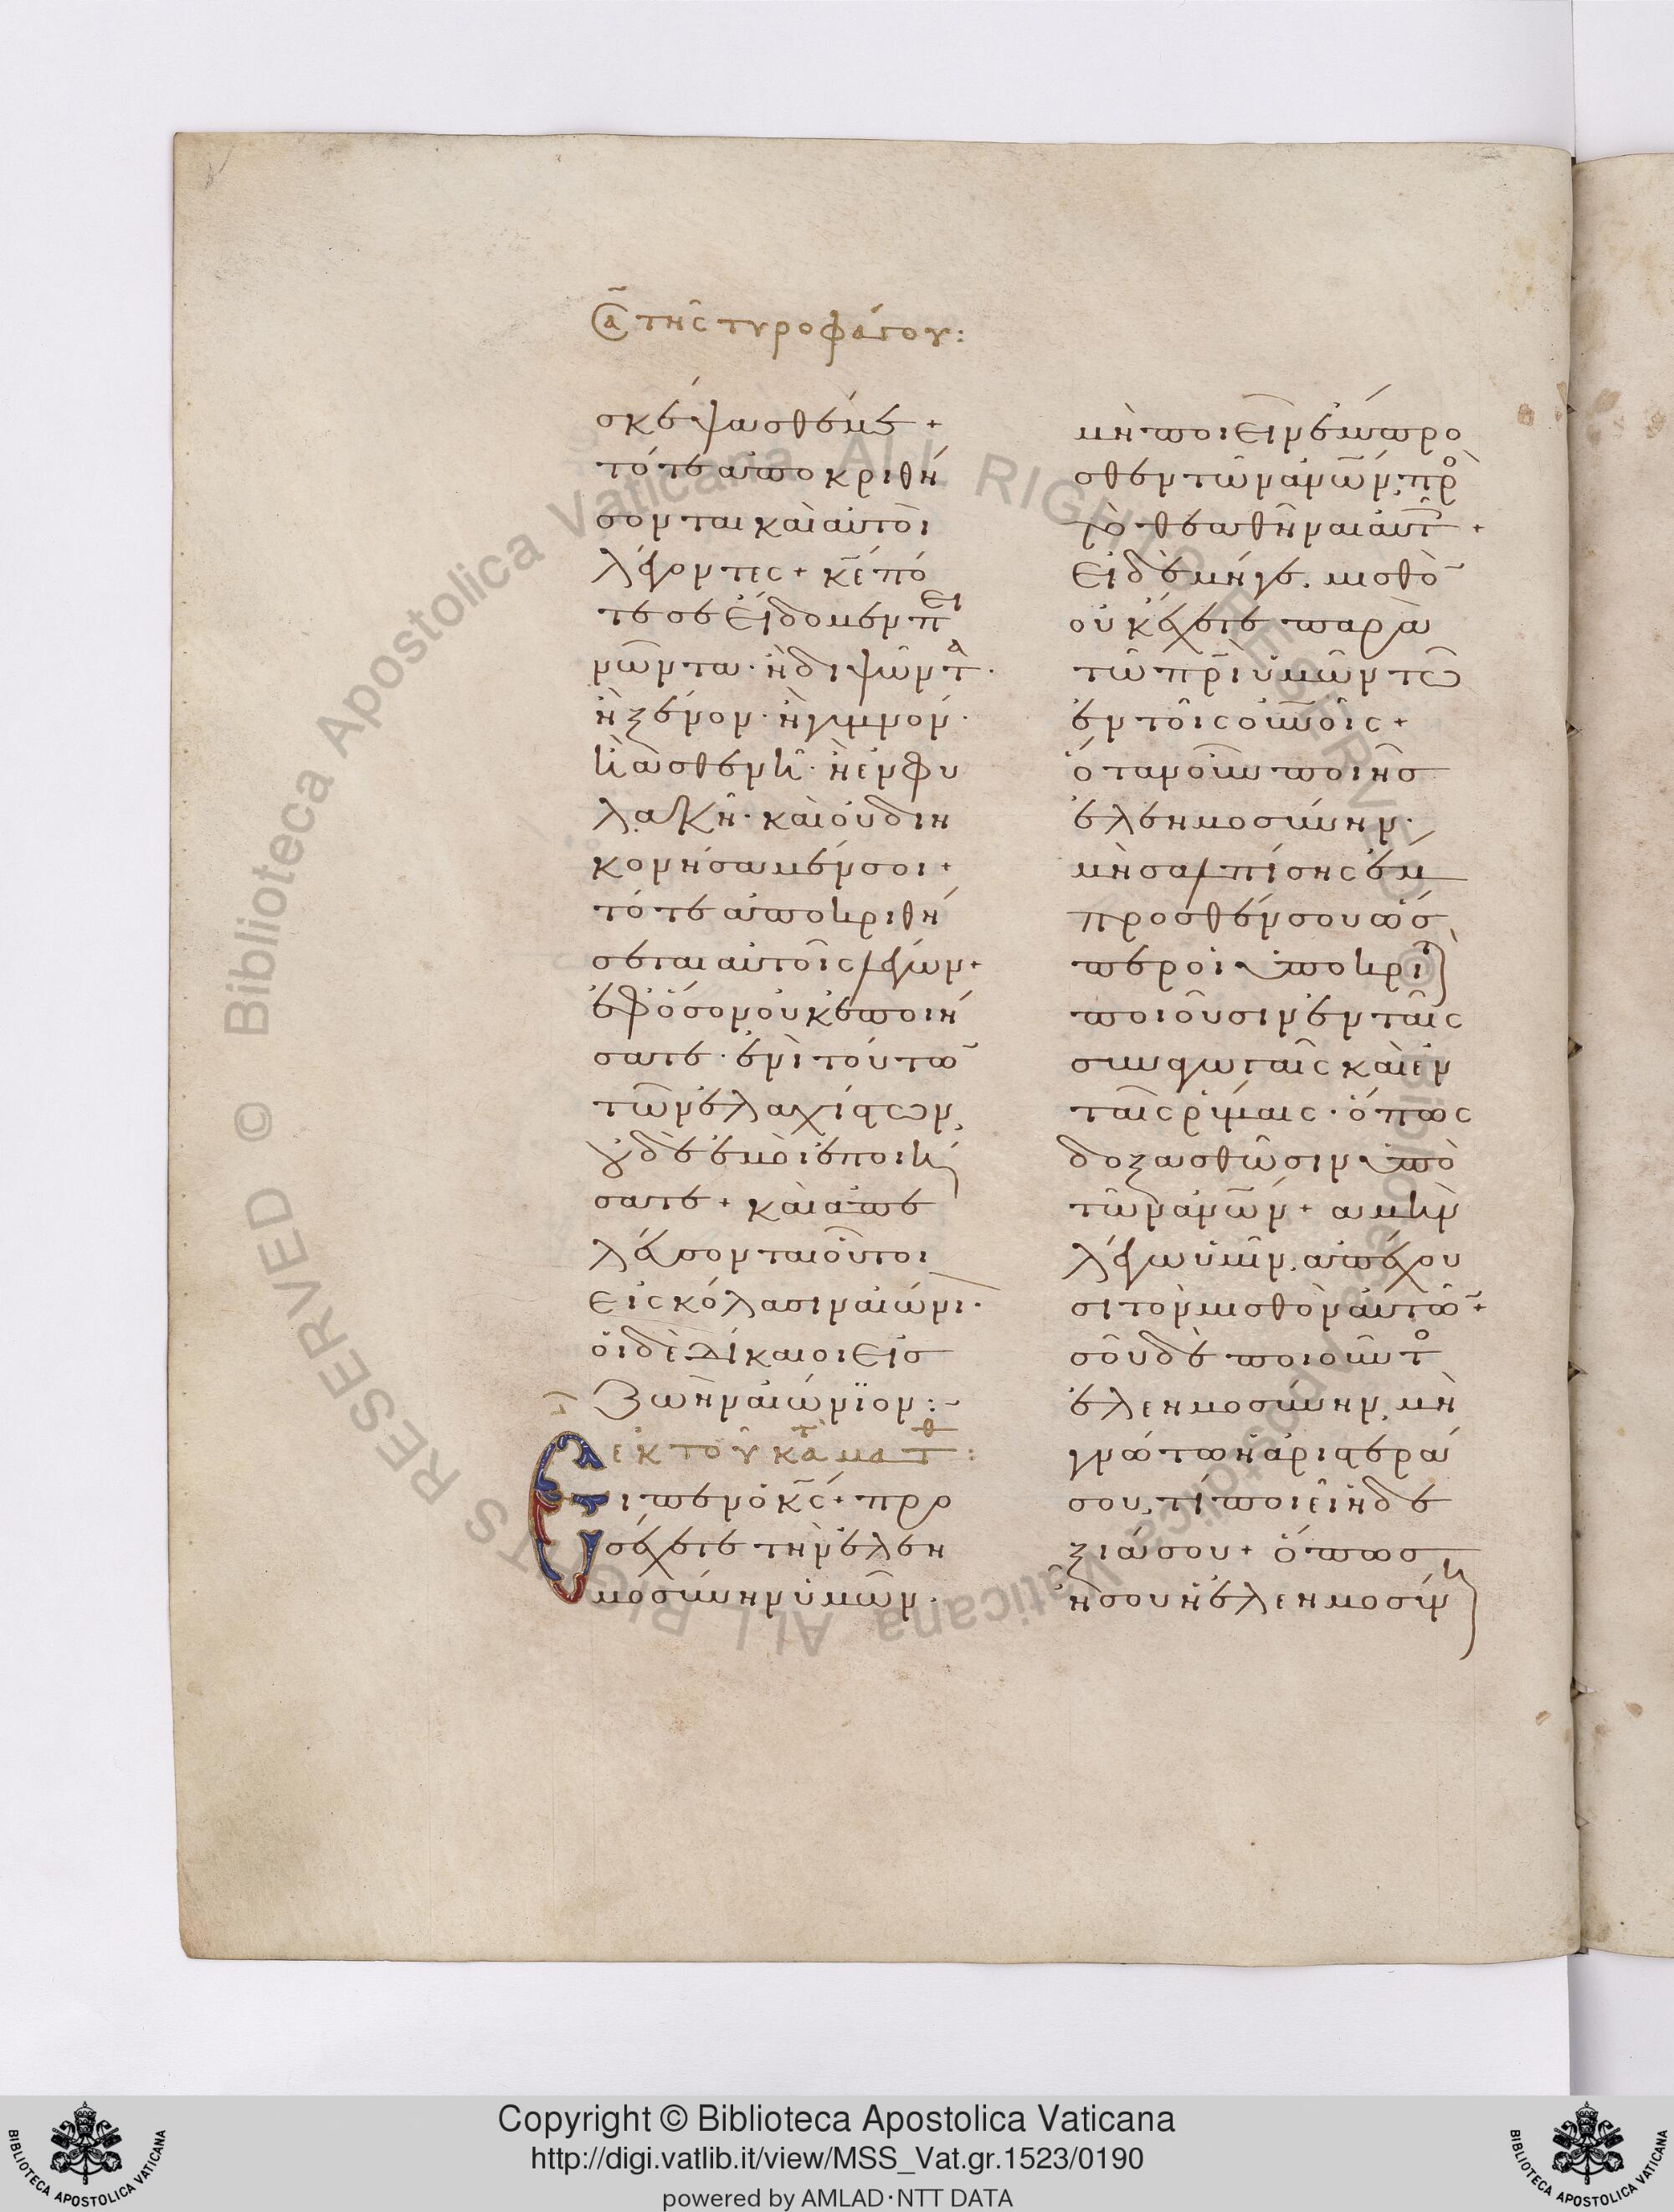 κ̅α̅ τῆς τυροφάγου:
σκέψασθέ με +
τότε ἀποκριθή
σονται καὶ αὐτοὶ
λέγοντες + κ̅ε̅ πό
τε σὲ εἴδομεν πει
νῶντα · ἢ διψῶντα ·
ἢ ξένον · ἢ γυμνόν ·
ἢ ἀσθενῆ · ἢ ἐν φυ
λακῆ · καὶ οὐ διη
κονήσαμέν σοι +
τότε ἀποκριθή
σεται αὐτοῖς λέγων +
ἐφόσον οὐκ ἐποιή
σατε · ἑνὶ τούτω̅
τῶν ἐλαχίστων,
οὐδὲ ἐμοὶ ἐποιή
σατε + καὶ ἀπε
λεύσονται οὗτοι
εἰς κόλασιν αἰώνι ·
οἱ δὲ δίκαιοι εἰσ
ζωὴν αἰώνϊον :-
ἐκ τοῦ κατὰ ματθ :
Εἶπεν ὁ κ̅ς̅ + προ
σέχετε τὴν ἐλεη
μοσύνην ὑμῶν ·
μὴ ποιεῖν ἔμπρο
σθεν τῶν ἀν̅ω̅ν, πρὸ
τὸ θεαθῆναι αὐτ +
εἰ δὲ μήγε, μισθὸ̅
οὐκ ἔχετε παρὰ
τῶ π̅ρ̅ι ὑμῶν τῶ
ἐν τοῖς οὐ̅ν̅οῖς +
ὅταν οὖν ποιῆσ
ἐλεημοσύνην ·
μὴ σαλπίσης ἔμ
προσθέν σου ὥσ
περ οἱ ὑποκριτ
ποιοῦσιν ἐν ταῖς
συναγωγαῖς καὶ ἐν
ταῖς ῥύμαις · ὅπως
δοξασθῶσιν ὑπὸ
τῶν ἀν̅ω̅ν + ἀμὴν
λέγω ὑμῖν, ἀπέχου
σι τὸν μισθὸν αὐτῶ̅ +
σοῦ δὲ ποιοῦντο
ἐλεημοσύνην, μὴ
γνώτω ἡ ἀριστερά
σου, τί ποιεῖ ἡ δε
ξιά σου + ὅπωσ
ῆ σου ἡ ἐλεημοσύνη
Copyright © Biblioteca Apostolica Vaticana
http://digi.vatlib.it/view/MSS_Vat.gr.1523/0190
powered by AMLAD·NTT DATA
BIBLIOTECA APOSTOLICA VATICANA
BIBLIOTECA APOSTOLICA VATICANA